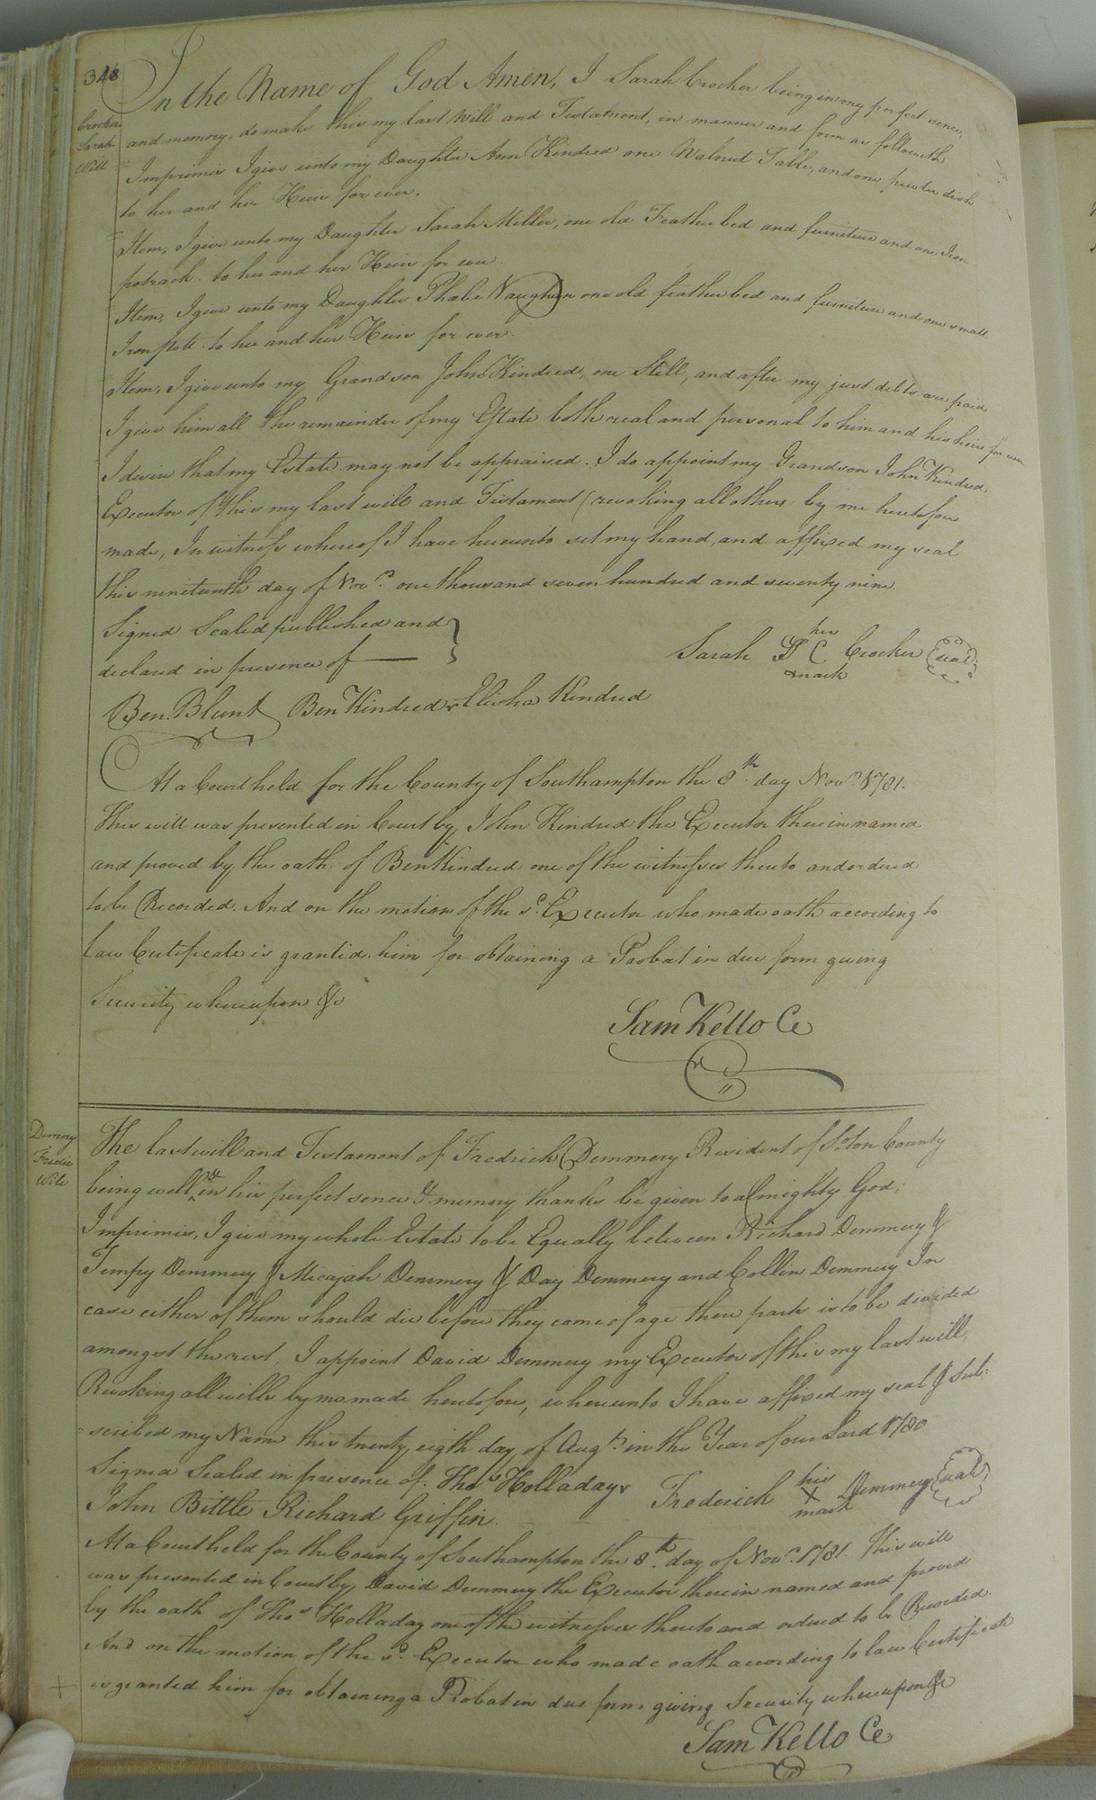 348
Crocker
Sarah
Will
In the Name of God Amen, I Sarah Crocker being in my perfect sence,
and memory, do make this my last Will and Testament, in manner and form as followeth
Imprimis I give unto my Daughter Ann Kindred one Walnut Table, and one pewter dish
to her and her Heirs for ever.
Item, I give unto my Daughter Sarah Miller, one old Feather bed and furniture and one Iron
potrack to her and her Heirs for ever.
Item, I give unto my Daughter Phebe Vaughan one old feather bed and furniture and one small
Iron pott to her and her Heirs for ever.
Item, I give unto my Grandson John Kindred, one Still, and after my just debts are paid
I give him all the remainder of my Estate both real and personal to him and his heirs for ever
I desire that my Estate may not be appraised. I do appoint my Grandson John Kindred
Executor of this my last will and Testament (revoking all others by me heretofore
made, In witness whereof I have hereunto set my hand, and affixed my seal
this nineteenth day of Novr. one thousand seven hundred and seventy nine
Signed Sealed published and
declared in presence of
her
Sarah S C Crocker (seal)
mark
Ben. Blunt Ben Kindred Elisha Kindred
At a Court held for the County of Southampton the 8th day Novr. 1781.
This will was presented in Court by John Kindred the Executor therein named
and proved by the oath of Ben Kindred one of the witnesses thereto and ordered
to be Recorded. And on the motion of the sd. Executor who made oath according to
law Certificate is granted him for obtaining a Probat in due form giving
Security whereupon &c
Sam Kello Ce
Demery
Fredk
Will
The last will and Testament of Fredrick Demmery Resident of So.ton County
being well & in his perfect sence & memory thanks be given to almighty God;
Imprimis, I give my whole Estate to be Equally between Richard Demmery &
Tempy Demmery & Micajah Demmery & Day Demmery and Collin Demmery In
case either of them should die before they come of age there part is to be divided
amongst the rest, I appoint David Demmery my Executor of this my last will,
Revoking all wills by me made heretofore, whereunto I have affixed my seal & Sub:
scribed my Name this twenty eigth day of Augt. in the Year of our Lord 1780
Signed Sealed in presence of. Thos. Holladay
his
Frederick X Demmery (seal)
mark
John Bittle Richard Griffin.
At a Court held for the County of Southampton the 8th. day of Novr. 1781. This will
was presented in Court by David Demmery the Executor therein named and proved
by the oath of Thos. Holladay one of the witnesses thereto and ordered to be Recorded.
And on the motion of the sd. Executor who made oath according to law Certificate
is granted him for obtaining a Probat in due form giving Security whereupon &c
Sam Kello Ce